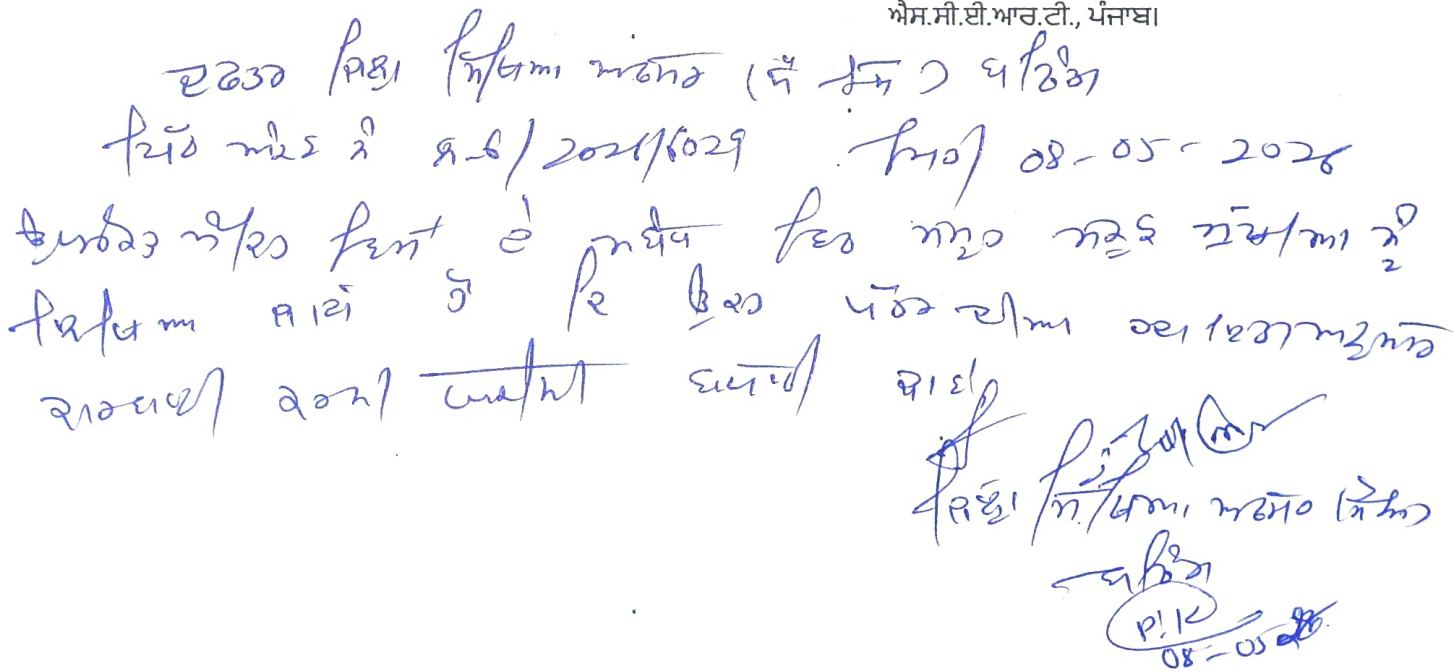 ਐਸ.ਸੀ.ਈ.ਆਰ.ਟੀ., ਪੰਜਾਬ।
ਦਫਤਰ ਜਿਲ੍ਹਾ ਸਿੱਖਿਆ ਅਫਸਰ (ਸੈ ਸਿੱ) ਬਠਿੰਡਾ
ਪਿੱਠ ਅੰਕਣ ਨੰ 2026/6029 ਮਿਤੀ 08-05-2026
ਉਪਰੋਕਤ ਅੰਕਿਤ ਵਿਸ਼ੇ ਦੇ ਸਬੰਧ ਵਿੱਚ ਸਮੂਹ ਸਕੂਲ ਮੁੱਖੀਆ ਨੂੰ
ਲਿਖਿਆ ਜਾਂਦਾ ਹੈ ਕਿ ਉਕਤ ਪੱਤਰ ਦੀਆ ਹਦਾਇਤਾ ਅਨੁਸਾਰ
ਕਾਰਵਾਈ ਕਰਨੀ ਯਕੀਨੀ ਬਣਾਈ ਜਾਵੇ
ਜਿਲ੍ਹਾ ਸਿੱਖਿਆ ਅਫਸਰ (ਸੈ ਸਿੱ)
ਬਠਿੰਡਾ
08-05-26